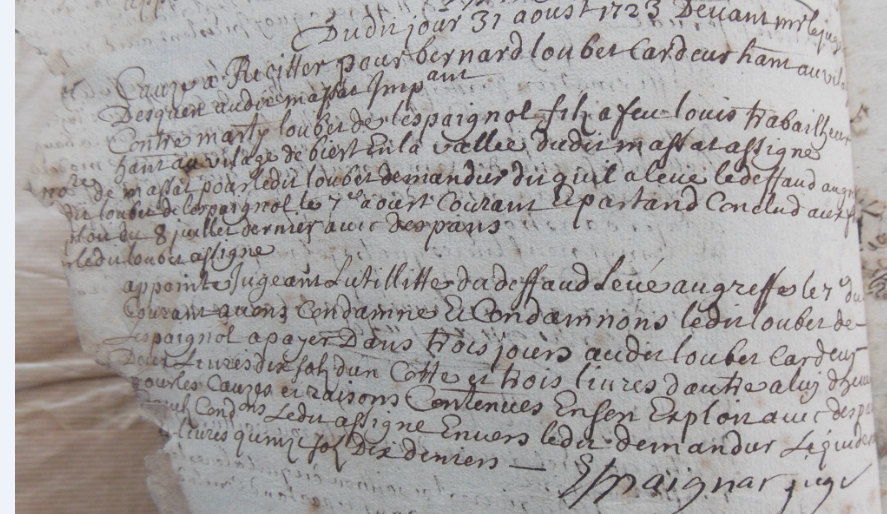 Dudit jour 31 aoust 1723 Devant mr le juge
Cauze a Reciter pour bernard loubet Cardeur hant au vil
Desquen audit massat Impant
Contre marty loubet de lespaignol filz a feu louis trabailheur
hant au vilage de biert En la vallee dudit massat assigne
no.re de massat pour ledit loubet demandur dit quil a leve le deffaud au gre
dit loubet de lespaignol le 7e aoust Courant Et partand Conclud aux f
du 8 juillet dernier avec despans
ledit loubet assigne
appointe Jugeant Lutillitte du deffaud Levé au greffe le 7e du
Courant avons Condamne Et Condamnons ledit loubet de
Lespaignol a payer Dans trois jours audit loubet Cardeur
Livres dix solz dun Cotte et trois livres dautre a luy
pour les Cauzes et raisons Contenues En son Exploit avec desp
Condons Ledit assigne Envers ledit demandur Liquides
livres quinze solz Dix deniers
Espaignac juge